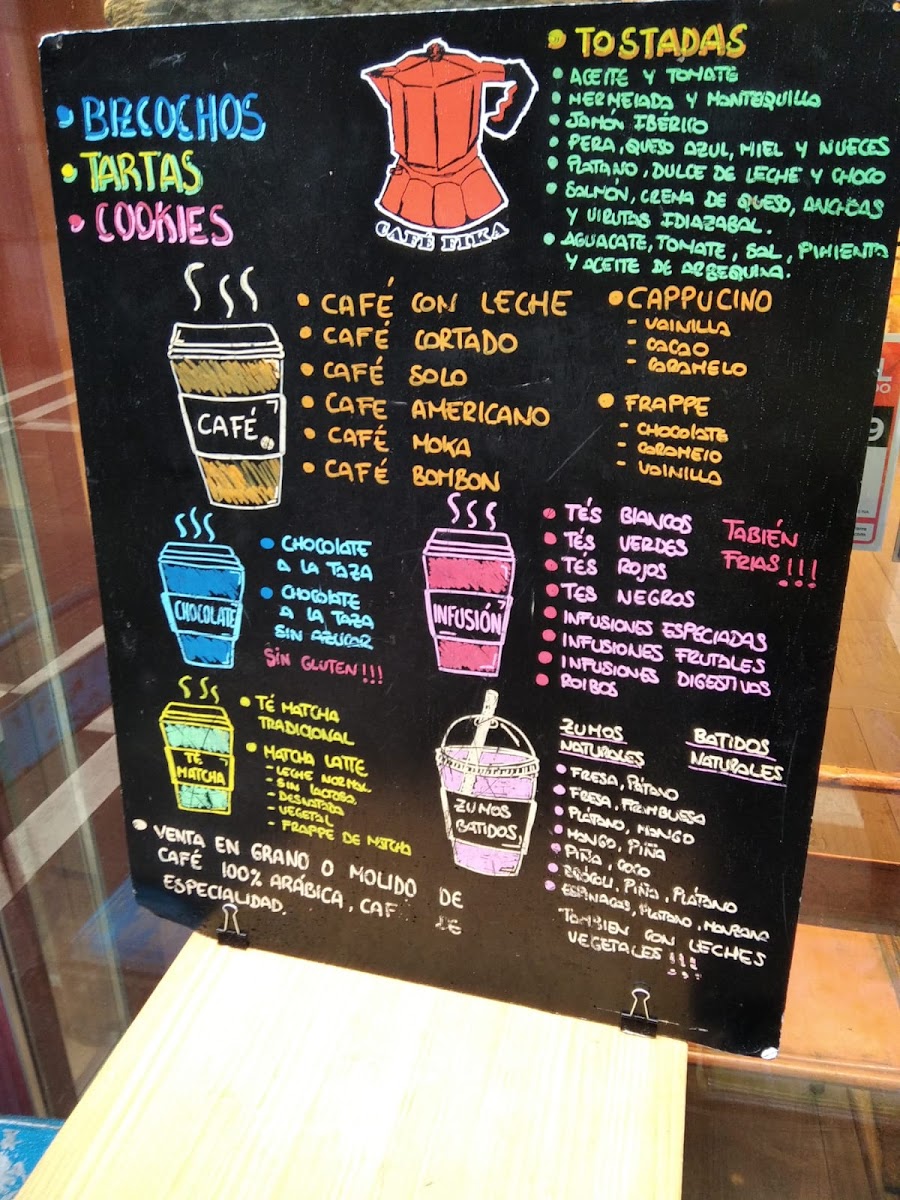 • BIZCOCHOS
• TARTAS
• COOKIES
CAFÉ FIKA
• TOSTADAS
• ACEITE Y TOMATE
• MERMELADA Y MANTEQUILLA
• JAMÓN IBÉRICO
• PERA, QUESO AZUL, MIEL Y NUECES
• PLATANO, DULCE DE LECHE Y CHOCO
• SALMÓN, CREMA DE QUESO, ANCHOAS
Y VIRUTAS IDIAZABAL.
• AGUACATE, TOMATE, SAL, PIMIENTA
Y ACEITE DE ARBEQUINA.
CAFÉ
• CAFÉ CON LECHE
• CAFÉ CORTADO
• CAFÉ SOLO
• CAFE AMERICANO
• CAFÉ MOKA
• CAFÉ BOMBON
• CAPPUCINO
- VAINILLA
- CACAO
- CARAMELO
• FRAPPE
- CHOCOLATE
- CARAMELO
- VAINILLA
CHOCOLATE
• CHOCOLATE
A LA TAZA
• CHOCOLATE
A LA TAZA
SIN AZUCAR
SIN GLUTEN!!!
INFUSIÓN
• TÉS BLANCOS
• TÉS VERDES
• TÉS ROJOS
• TES NEGROS
• INFUSIONES ESPECIADAS
• INFUSIONES FRUTALES
• INFUSIONES DIGESTIVAS
• ROIBOS
TABIÉN
FRIAS!!!
TÉ
MATCHA
• TÉ MATCHA
TRADICIONAL
• MATCHA LATTE
- LECHE NORMAL
- SIN LACTOSA
- DESNATADA
- VEGETAL
- FRAPPÉ DE MATCHA
ZUMOS
BATIDOS
ZUMOS
NATURALES
BATIDOS
NATURALES
• FRESA, PLÁTANO
• FRESA, FRAMBUESA
• PLÁTANO, MANGO
• MANGO, PIÑA
• PIÑA, COCO
• BRÓCOLI, PIÑA, PLÁTANO
• ESPINACAS, PLATANO, MANZANA
TAMBIEN CON LECHES
VEGETALES!!!
• VENTA EN GRANO O MOLIDO DE
CAFÉ 100% ARÁBICA, CAF DE
ESPECIALIDAD.